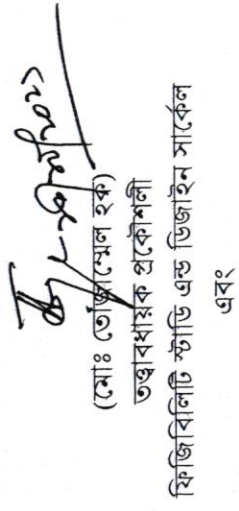 (মোঃ তোজাম্মেল হক)
তত্ত্বাবধায়ক প্রকৌশলী
ফিজিবিলিটি স্টাডি এন্ড ডিজাইন সার্কেল
এবং